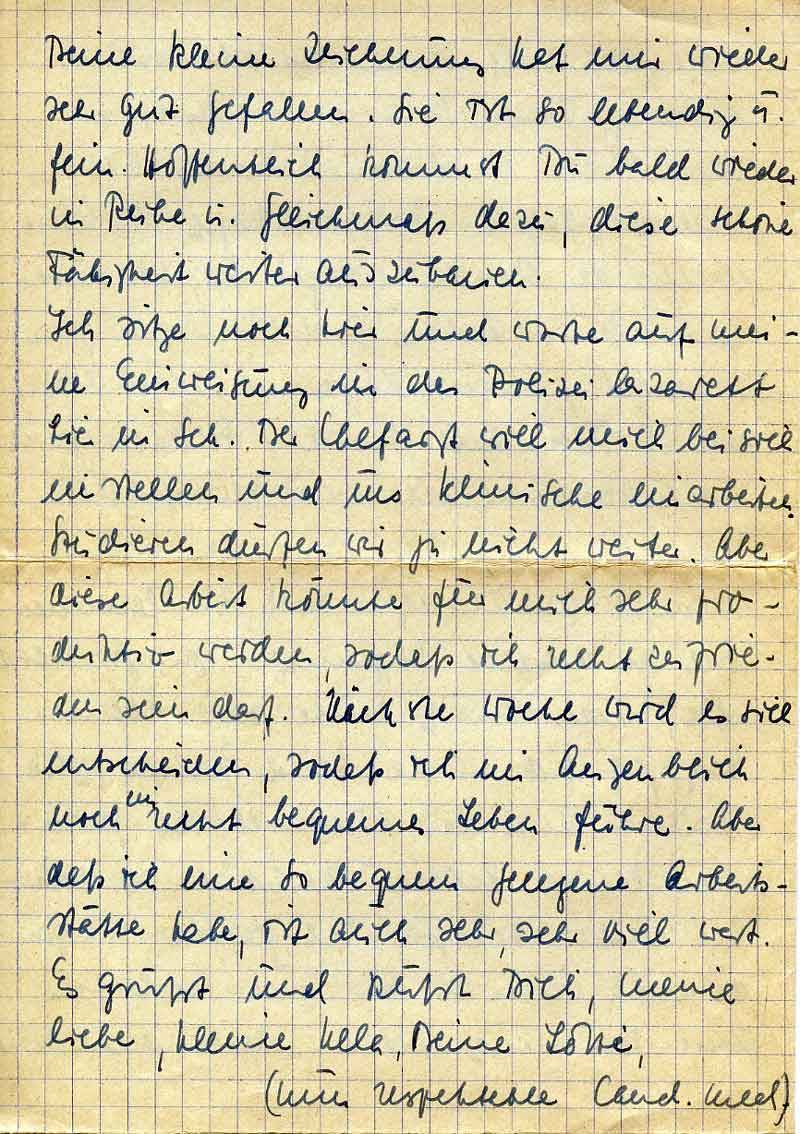 Deine kleine Zeichnung hat mir wieder
sehr gut gefallen. Sie ist so lebendig u.
fein. Hoffentlich kommst Du bald wieder
in Ruhe u. Gleichmaß dazu, diese schöne
Fähigkeit weiter auszubauen.
Ich sitze noch hier und warte auf mei-
ne Einweisung in das Polizeilazarett
hier in Sch. Der Chefarzt will mich bei sich
einstellen und ins klinische einarbeiten.
Studieren dürfen wir ja nicht weiter. Aber
diese Arbeit könnte für mich sehr pro-
duktiv werden, sodaß ich recht zufrie-
den sein darf. Nächste Woche wird es sich
entscheiden, sodaß ich im Augenblick
noch ein recht bequemes Leben führe. Aber
daß ich eine so bequem gelegene Arbeits-
stätte habe, ist auch sehr, sehr viel wert.
Es grüßt und küßt Dich, meine
liebe, kleine Hela, Deine
(nun Cand. med)